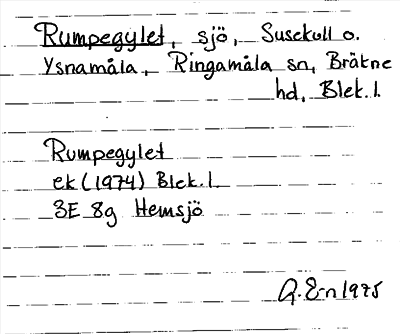 Rumpegylet, sjö, Susekull o.
Ysnamåla, Ringamåla sn, Bräkne
hd, Blek. l.
Rumpegylet
ek (1974) Blek. l.
3E 8g Hemsjö
1975